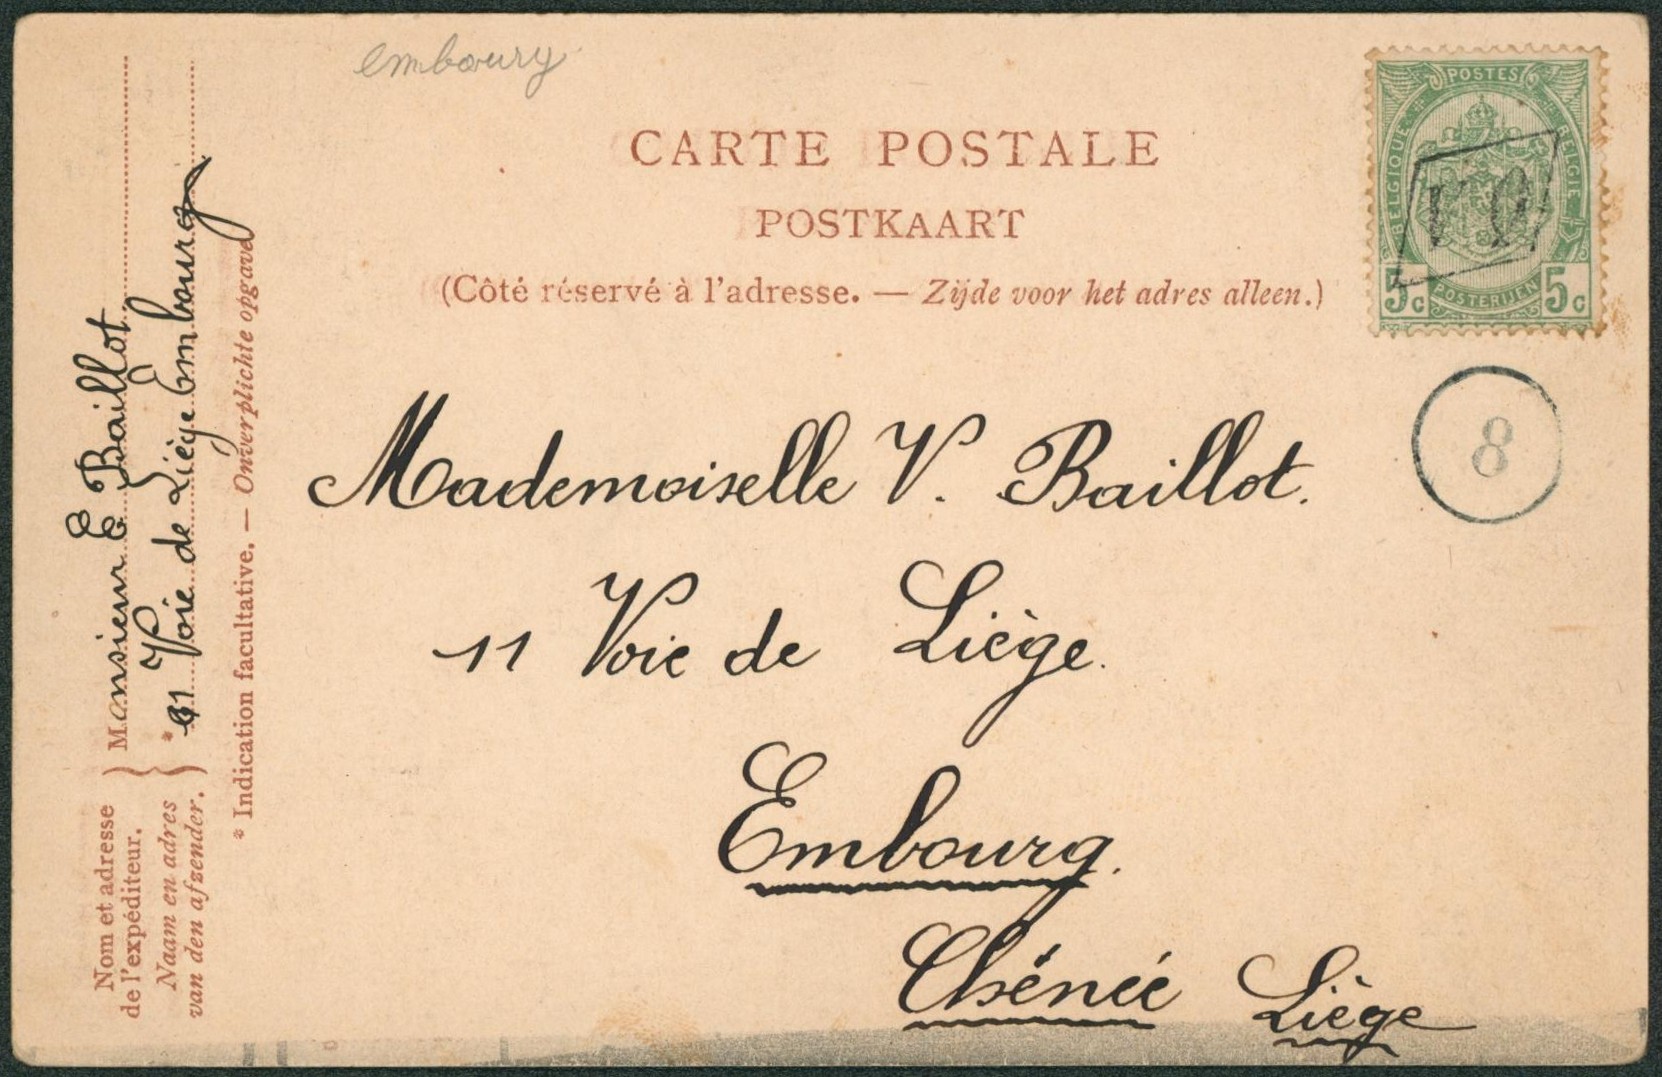 embourg
CARTE POSTALE
POSTKAART
(Côté réservé à l'adresse. — Zijde voor het adres alleen.)
POSTES
BELGIQUE
BELGIE
5c POSTERIJEN 5c
8
Mademoiselle V. Baillot.
11 Voie de Liège.
Embourg.
Chênée Liège
Nom et adresse
de l'expéditeur.
Naam en adres
van den afzender.
Monsieur E Baillot
* 11 Voie de Liège Embourg
* Indication facultative. — Onverplichte opgave